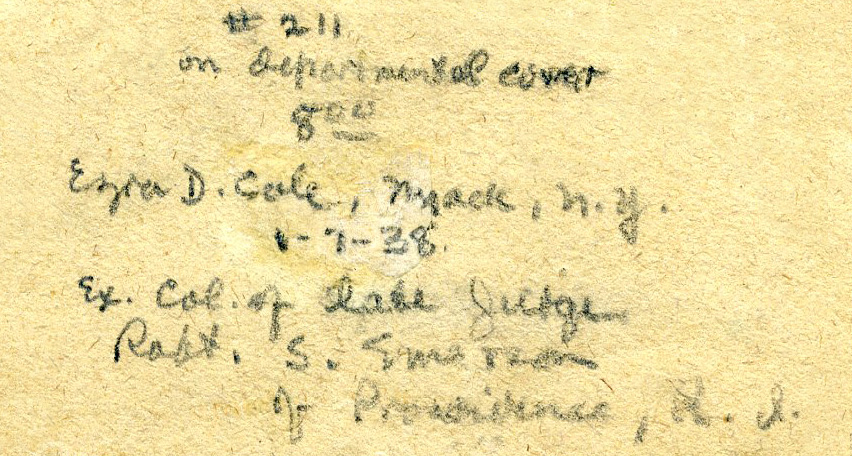 # 211
on departmental cover
8 00
Ezra D. Cole, Nyack, N.Y.
1-7-38.
Ex. Col. of late Judge
Robt. S. Emerson
of Providence, R. I.